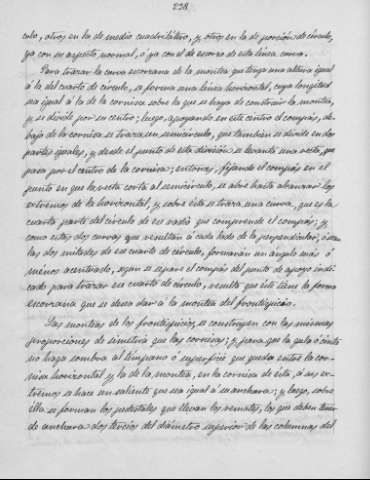 228.
culo, otros en la de medio cuadrilátero, y otros en la de porción de círculo,
ya con su aspecto normal, ó ya con el de escorzo de esta línea curva.
Para trazar la curva escorzana de la montea que tenga una altura igual
á la del cuarto de círculo, se forma una línea horizontal, cuya longitud
sea igual á la de la cornisa sobre la que se haya de construir la montea,
y se divide por su centro; luego, apoyando en este centro el compás, de-
bajo de la cornisa se traza un semicírculo, que también se divide en dos
partes iguales, y desde el punto de esta división se levanta una recta, que
pasa por el centro de la cornisa; entonces, fijando el compás en el
punto en que la recta corta al semicírculo, se abre hasta alcanzar los
extremos de la horizontal, y sobre ésta se traza una curva, que es la
cuarta parte del círculo de ese radio que comprende el compás; y
como estas dos curvas que resultan á cada lado de la perpendicular, ó sean
las dos mitades de ese cuarto de círculo, formarán un ángulo más ó
menos acentuado, según se separe el compás del punto de apoyo indi-
cado para trazar su cuarto de círculo, resulta que éste tiene la forma
escorzana que se desea dar á la montea del frontispicio.
Las monteas de los frontispicios se construyen con las mismas
proporciones de simetría que las cornisas; y para que la gula ó cinta
no haga sombra al tímpano ó superficie que queda entre la cor-
nisa horizontal y la de la montea, en la cornisa de ésta, á sus ex-
tremos se hace un saliente que sea igual á su anchura; y luego, sobre
ella se forman los pedestales que llevan los remates, los que deben tener
de anchura dos tercios del diámetro superior de las columnas del